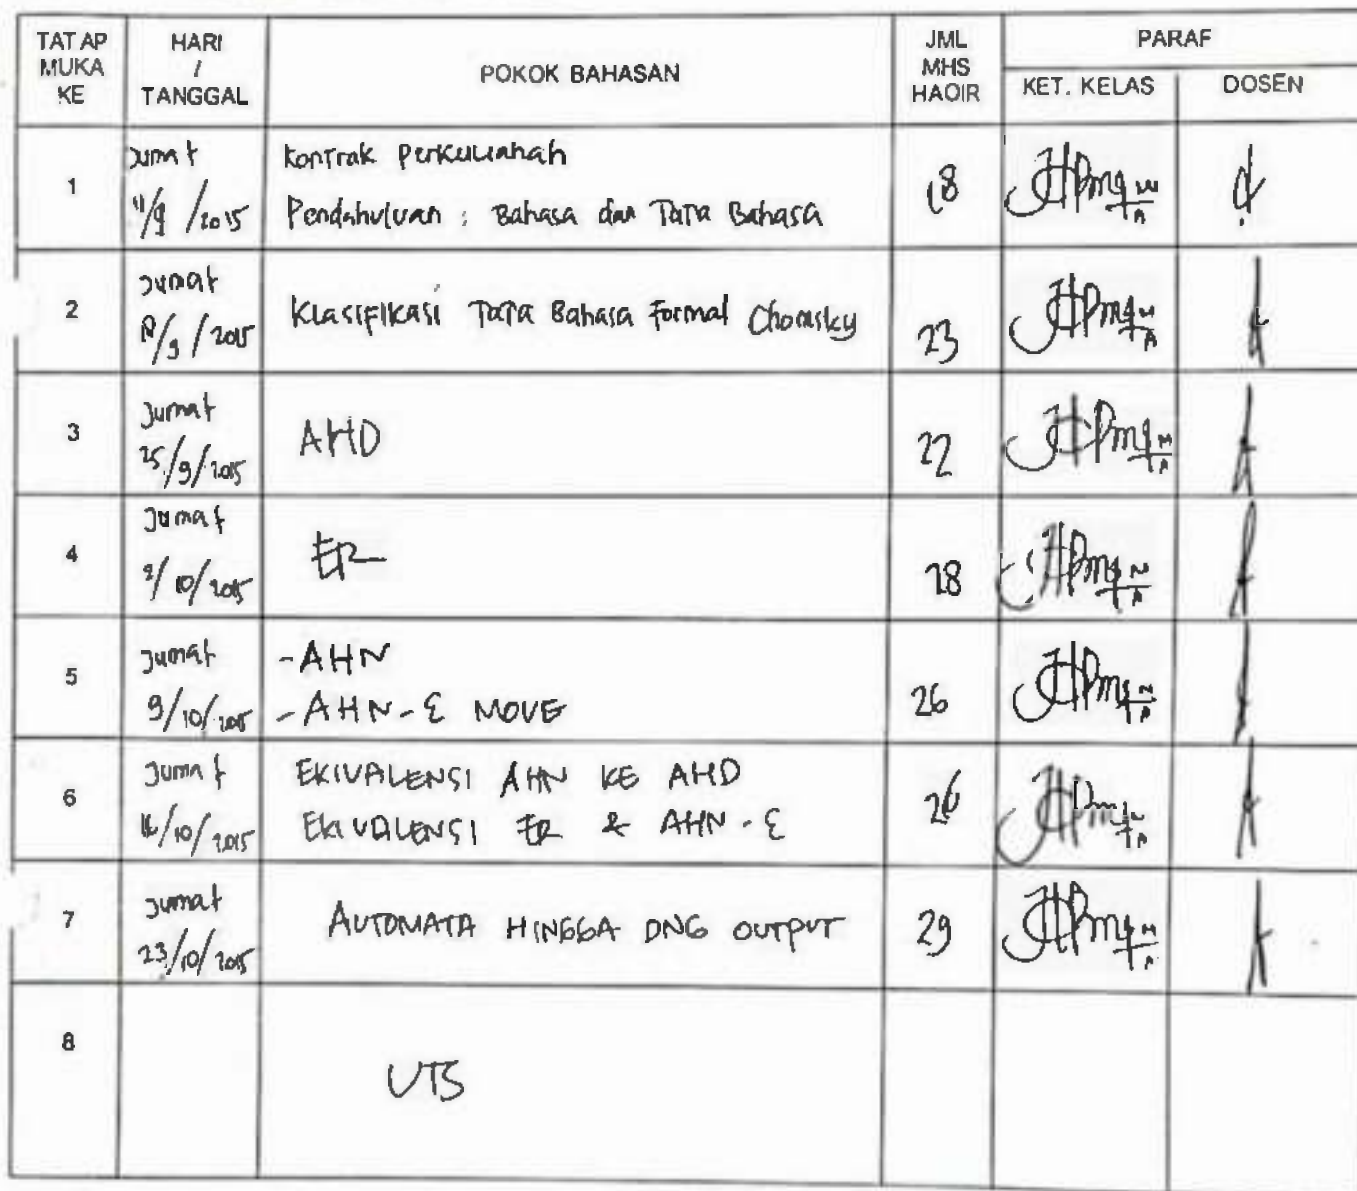 TATAP MUKA KE
HARI / TANGGAL
POKOK BAHASAN
JML MHS HADIR
PARAF
KET. KELAS
DOSEN
1
Jumat
11/9/2015
Kontrak perkuliahan
Pendahuluan : Bahasa dan Tata Bahasa
18
2
Jumat
18/9/2015
Klasifikasi Tata Bahasa Formal Chomsky
23
3
Jumat
25/9/2015
AHD
22
4
Jumat
2/10/2015
ER
28
5
Jumat
9/10/2015
-AHN
-AHN-ε MOVE
26
6
Jumat
16/10/2015
EKIVALENSI AHN KE AHD
EKIVALENSI ER & AHN-ε
26
7
Jumat
23/10/2015
AUTOMATA HINGGA DNG OUTPUT
29
8
UTS